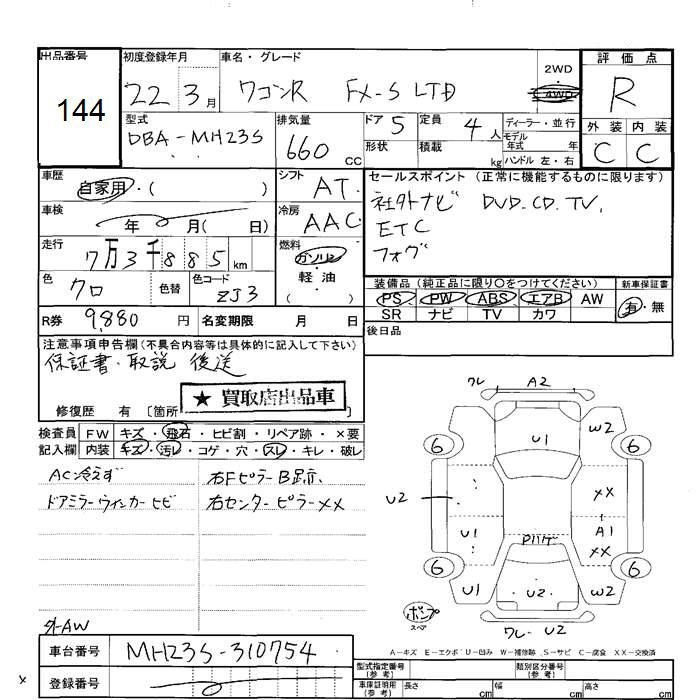 出品番号 144
初度登録年月 22年 3月
車名・グレード ワゴンR FX-S LTD
2WD
4WD
評価点 R
外装 C 内装 C
型式 DBA-MH23S
排気量 660 cc
ドア 5
形状
定員 4人
積載 kg
ディーラー・並行
モデル年式 年式
ハンドル 左・右
車歴 自家用・( )
シフト AT
車検 年 月( 日)
冷房 AAC
走行 7万3千885 km
燃料 ガソリン
軽・油
( )
色 クロ 色替 色コード ZJ3
R券 9,880 円 名変期限 月 日
セールスポイント (正常に機能するものに限ります)
社外ナビ DVD.CD.TV.
ETC
フォグ
装備品 (純正品に限り○をつけてください)
新車保証書
PS PW ABS エアB AW
SR ナビ TV カワ
有・無
後日品
注意事項申告欄(不具合内容等は具体的に記入して下さい)
保証書・取説 後送
★ 買取店出品車
修復歴 有 〔箇所
検査員記入欄
FW キズ・飛石・ヒビ割・リペア跡・×要
内装 キズ・汚レ・コゲ・穴・スレ・キレ・破レ
AC冷えず
ドアミラーウィンカーヒビ
右Fピラー B跡、
右センターピラーXX
外AW
車台番号 MH23S-310754
登録番号
ワレ A2
U1
W2
6 6
U2
XX
U1
A1
XX
Dハゲ
6 6
U1
U2
W2
ポンプ
スペア
ワレ U2
A－キズ E－エクボ U－凹み W－補修跡 S－サビ C－腐食 XX－交換済
型式指定番号(参考)
類別区分番号(参考)
車庫証明用(参考) 長さ cm 幅 cm 高さ cm
x